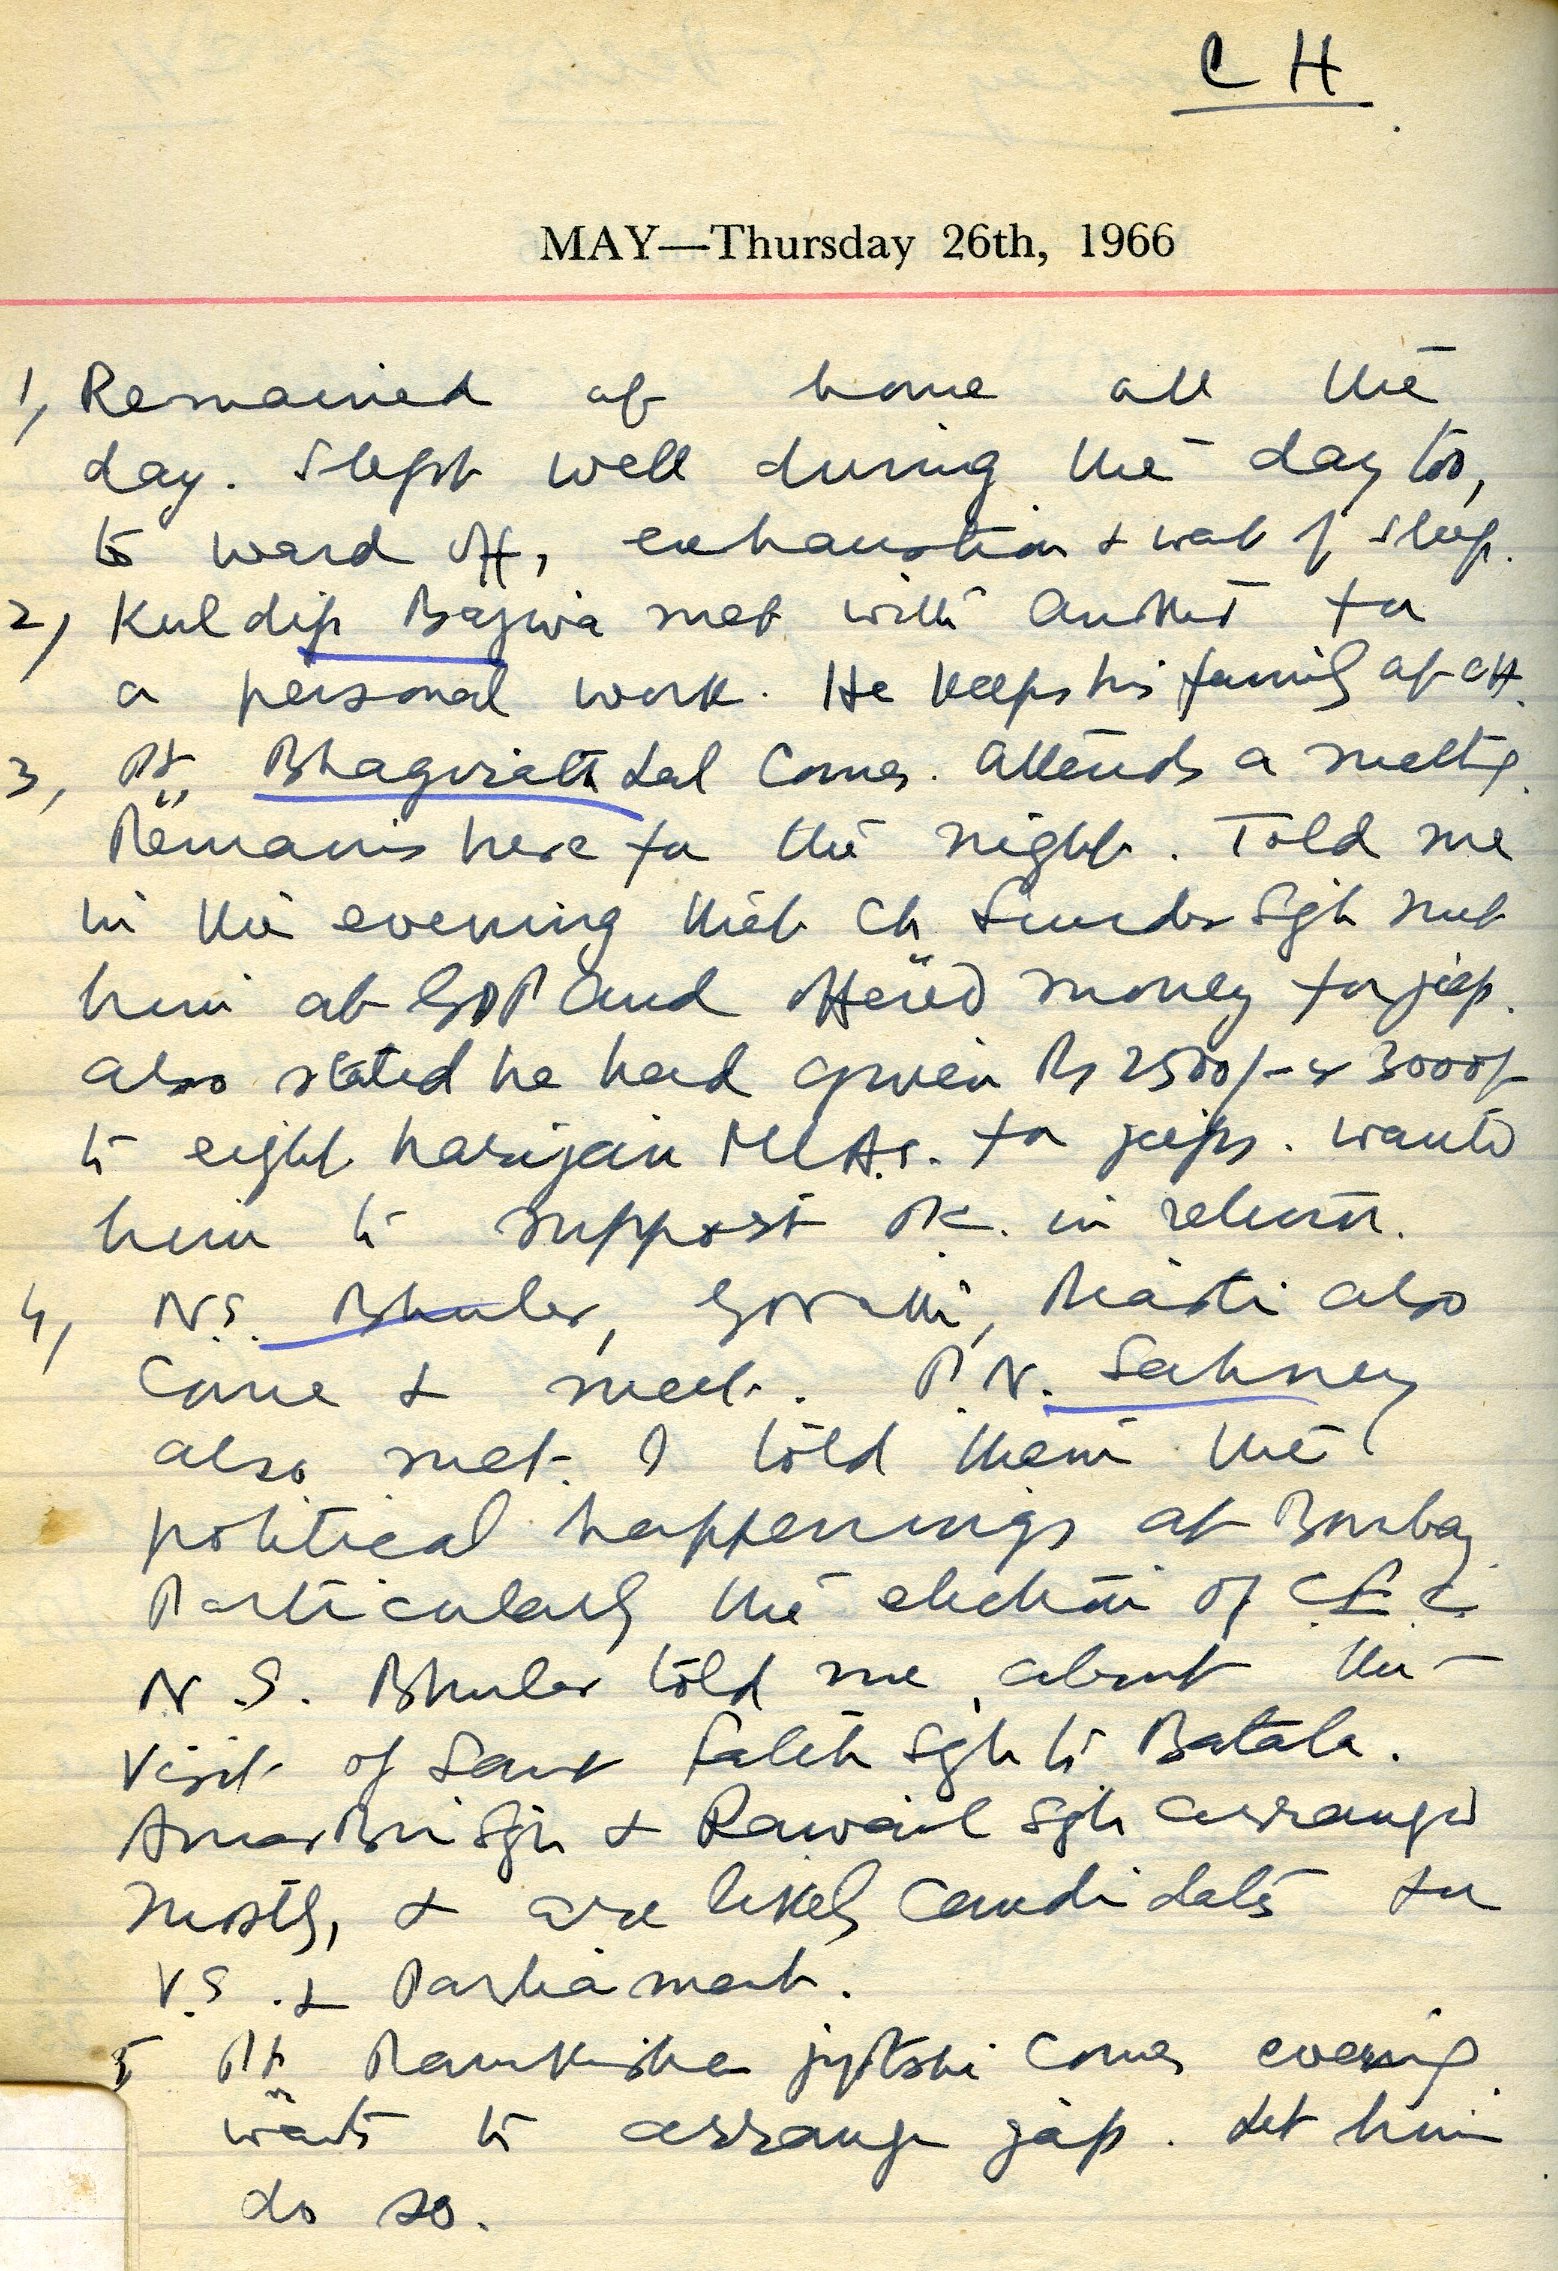 C H
MAY—Thursday 26th, 1966
1, Remained at home all the
day. Slept well during the day too,
to ward off, exhaustion & want of sleep.
2, Kuldip Bajwa met with another for
a personal work. He keeps his family at CH.
3, Pt. Bhagirath Lal comes. Attends a meeting.
Remains here for the night. Told me
in the evening that Ch Sunder Sgh met
him at GDP and offered money for jeep.
Also stated he had given Rs 2500/- or 3000/-
to eight harijan MLAs. for jeeps. wanted
him to support in return.
4, N.S. Bhuler, also
came & meet. P.N. Sahney
also met. I told them the
political happenings at Bombay.
Particularly the election of C.E.C.
N.S. Bhuler told me about the
visit of Sant Fateh Sgh to Batala.
Sgh & Rawail Sgh arranged
mostly, & are likely candidates for
V.S. & Parliament.
5 Pt Ramkishen jyotshi comes evening.
wants to arrange jap. Let him
do so.